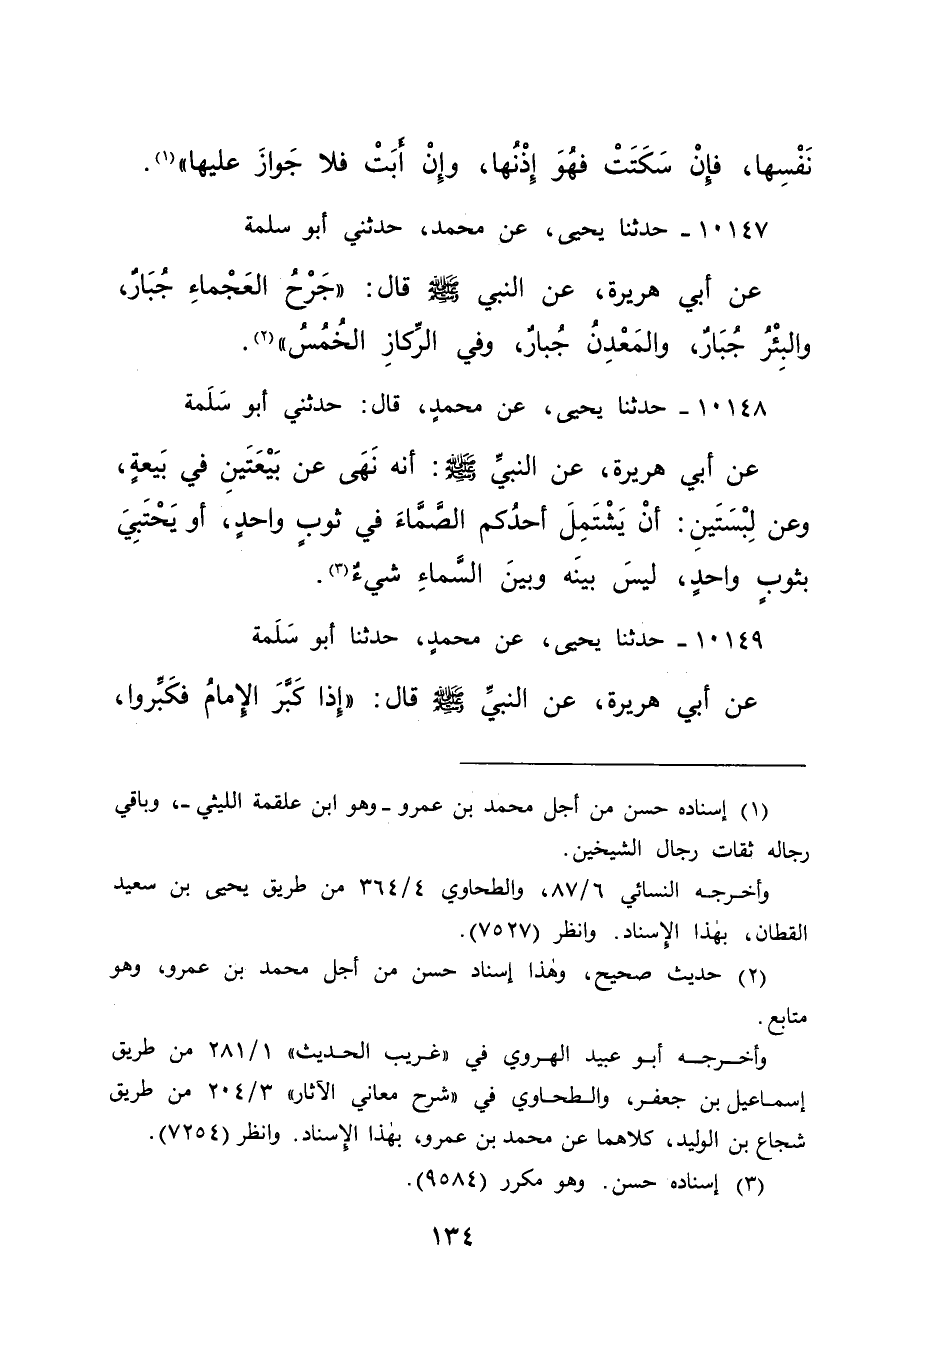 نَفْسِها، فإِنْ سَكَتَتْ فهُوَ إِذْنُها، وإِنْ أَبَتْ فلا جَوازَ عليها»(١).
١٠١٤٧ ـ حدثنا يحيى، عن محمد، حدثني أبو سلمة
عن أبي هريرة، عن النبي ﷺ قال: «جَرْحُ العَجْماءِ جُبَارٌ،
والبِئْرُ جُبَارٌ، والمَعْدِنُ جُبارٌ، وفي الرِّكازِ الخُمُسُ»(٢).
١٠١٤٨ ـ حدثنا يحيى، عن محمدٍ، قال: حدثني أبو سَلَمة
عن أبي هريرة، عن النبيِّ ﷺ: أنه نَهَى عن بَيْعَتَينِ في بَيعةٍ،
وعن لِبْسَتَينِ: أنْ يَشْتَمِلَ أحدُكم الصَّمَّاءَ في ثوبٍ واحدٍ، أو يَحْتَبِيَ
بثوبٍ واحدٍ، ليسَ بينَه وبينَ السَّماءِ شيءٌ(٣).
١٠١٤٩ ـ حدثنا يحيى، عن محمدٍ، حدثنا أبو سَلَمة
عن أبي هريرة، عن النبيِّ ﷺ قال: «إِذا كَبَّرَ الإِمامُ فكَبِّروا،
(١) إسناده حسن من أجل محمد بن عمرو ـ وهو ابن علقمة الليثي ـ، وباقي
رجاله ثقات رجال الشيخين.
وأخرجه النسائي ٨٧/٦، والطحاوي ٣٦٤/٤ من طريق يحيى بن سعيد
القطان، بهٰذا الإِسناد. وانظر (٧٥٢٧).
(٢) حديث صحيح، وهٰذا إسناد حسن من أجل محمد بن عمرو، وهو
متابع.
وأخرجه أبو عبيد الهروي في «غريب الحديث» ٢٨١/١ من طريق
إسماعيل بن جعفر، والطحاوي في «شرح معاني الآثار» ٢٠٤/٣ من طريق
شجاع بن الوليد، كلاهما عن محمد بن عمرو، بهٰذا الإِسناد. وانظر (٧٢٥٤).
(٣) إسناده حسن. وهو مكرر (٩٥٨٤).
١٣٤